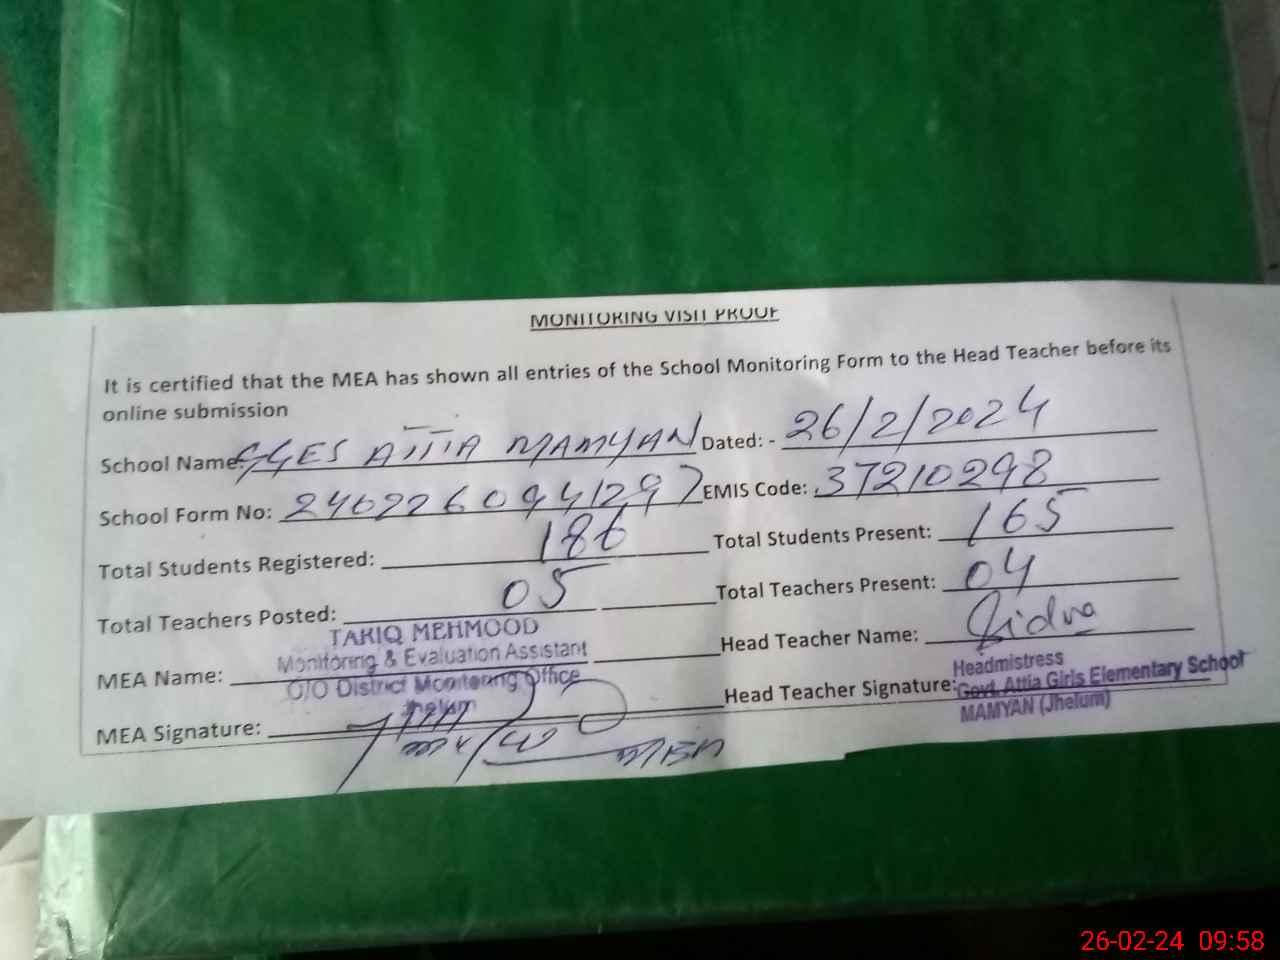 MONITORING VISIT PROOF
It is certified that the MEA has shown all entries of the School Monitoring Form to the Head Teacher before its
online submission
School Name: GGES ATTIA MAMYAN Dated: - 26/2/2024
School Form No: EMIS Code: 37210298
Total Students Registered: 186 Total Students Present: 165
Total Teachers Posted: 05 Total Teachers Present: 04
TARIQ MEHMOOD
Monitoring & Evaluation Assistant
O/O District Monitoring Office
Jhelum
MEA Name: Head Teacher Name: Sidra
MEA Signature: Head Teacher Signature:
Headmistress
Govt. Attia Girls Elementary School
MAMYAN (Jhelum)
26-02-24 09:58